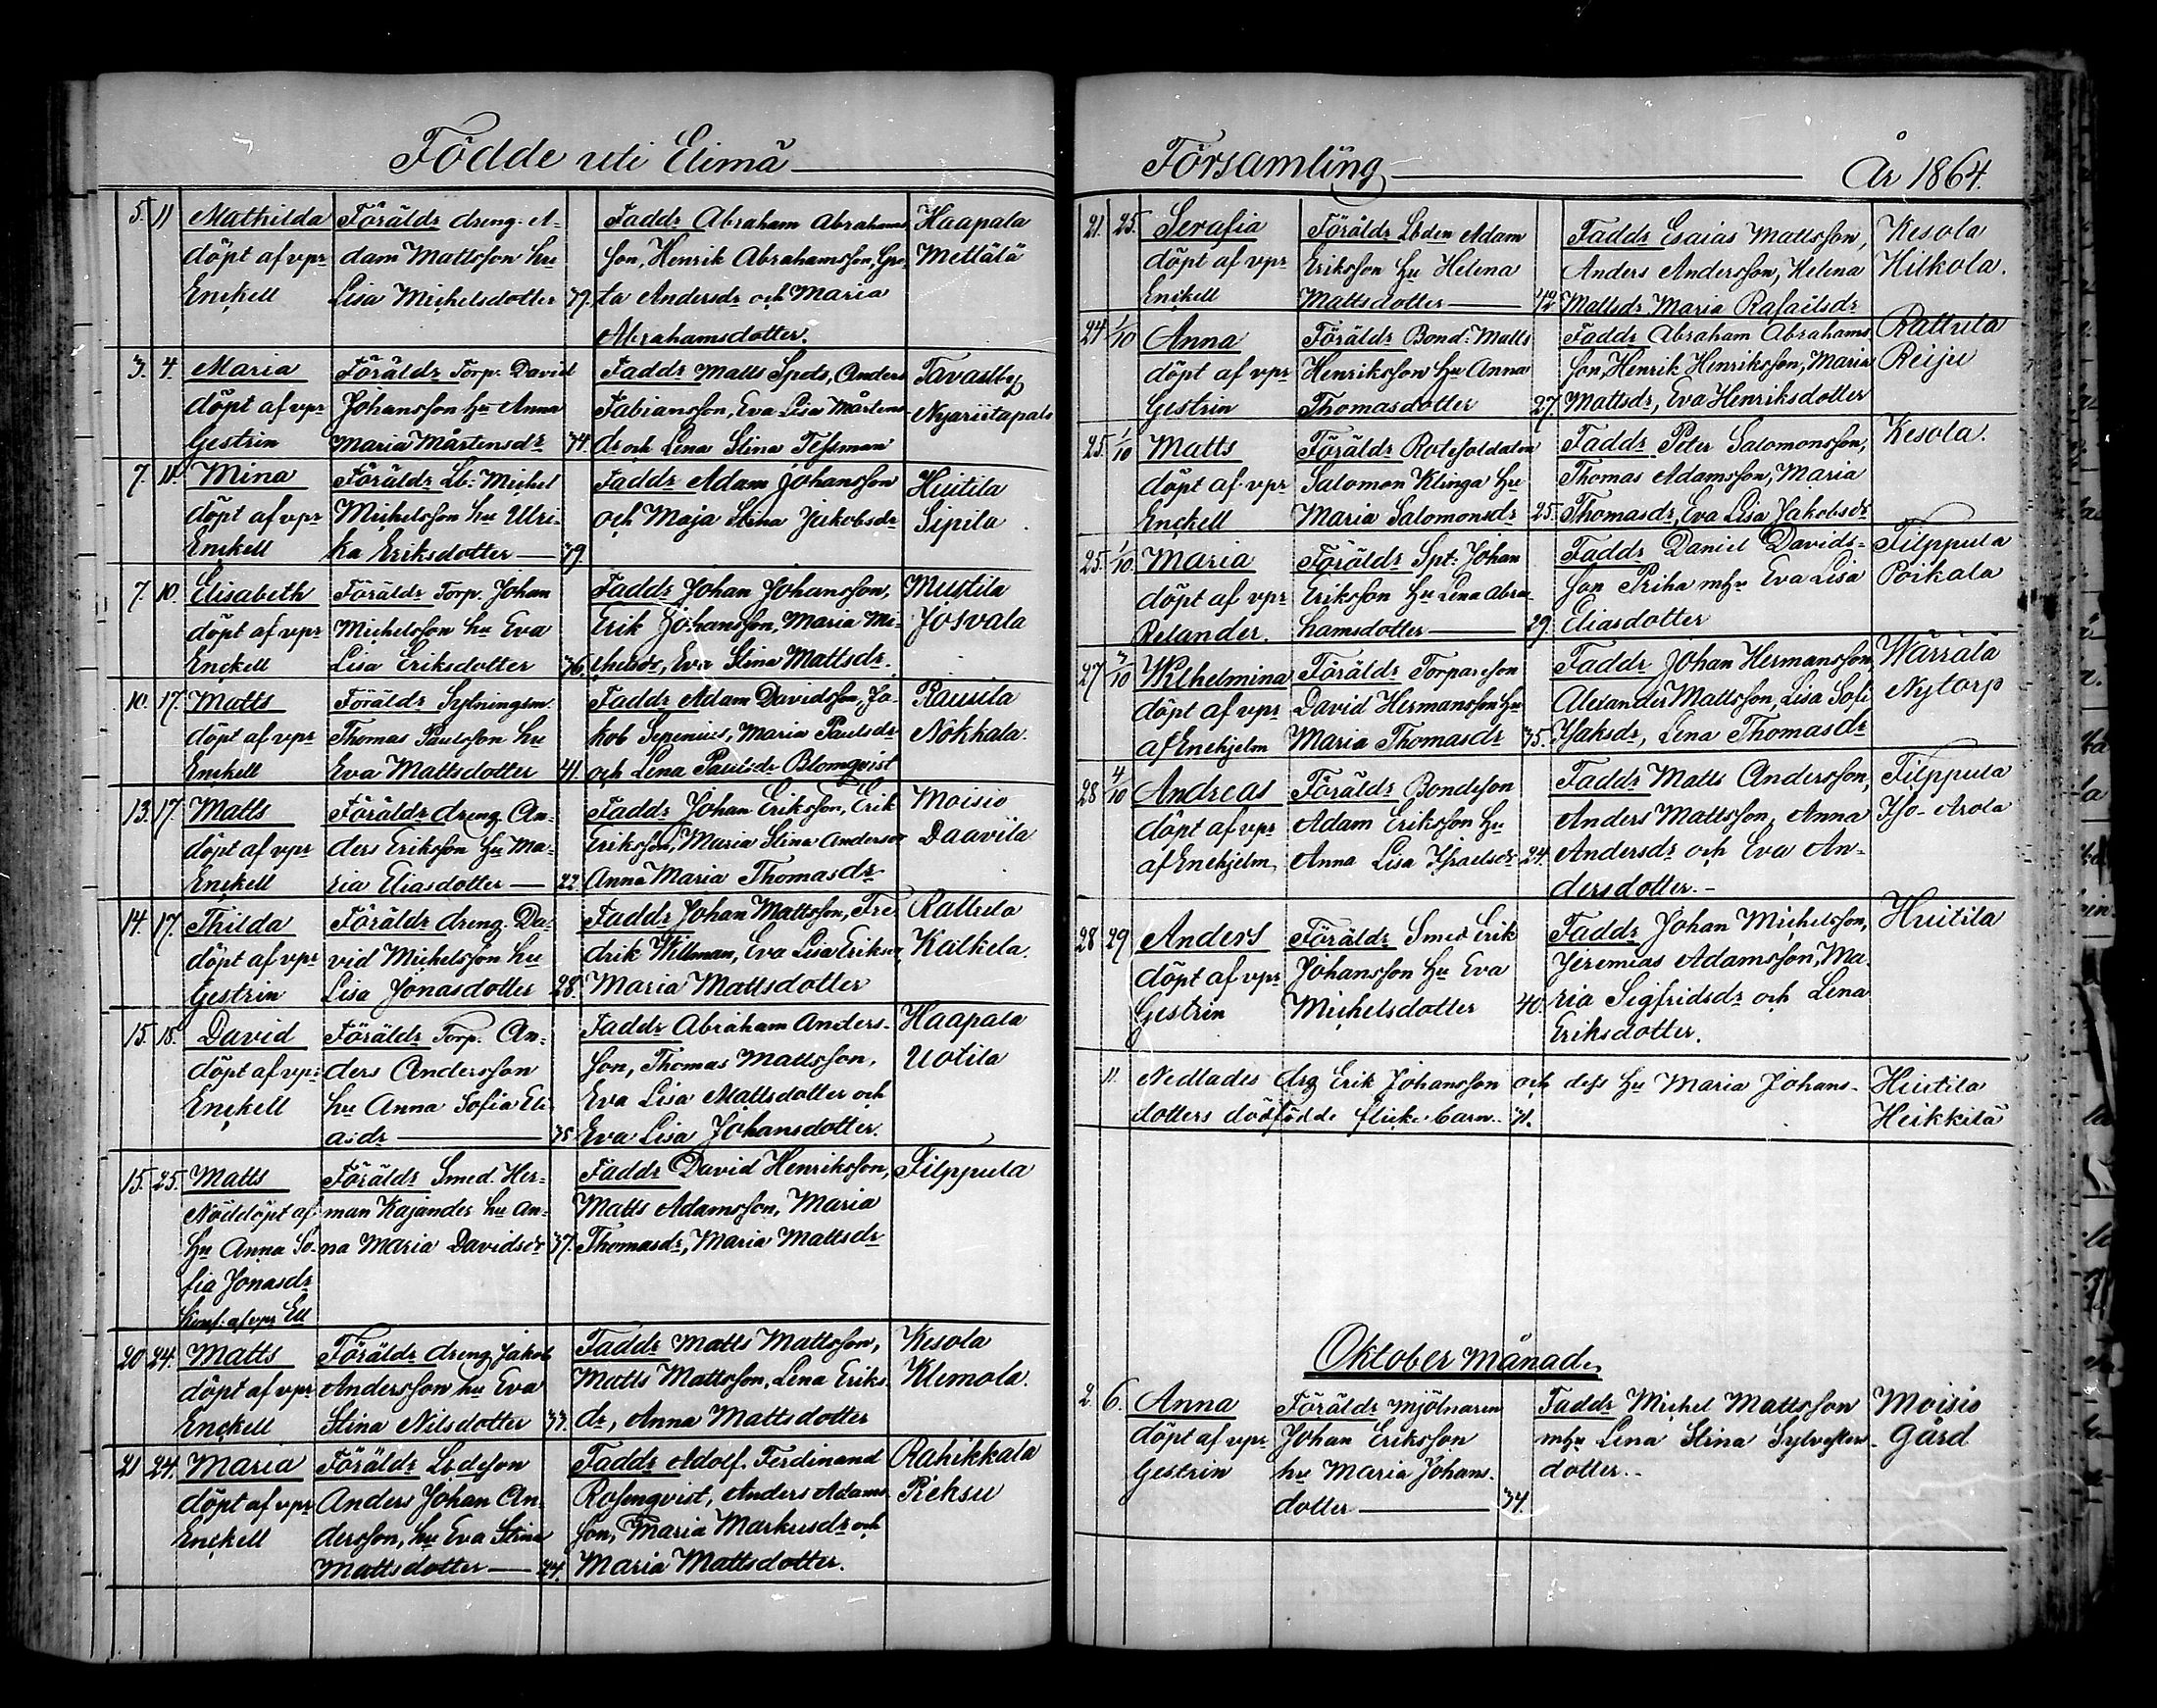 Födde uti Elimä
5. 11 Mathilda Föräldr dreng. A- Faddr Abraham Abrahams Haapala
döpt af vpr dam Mattsson hu son, Henrik Abrahamsson, Gre- Mettälä
Enckell Lisa Michelsdotter 39. ta Andersdr och Maria
Abrahamsdotter.
3. 4. Maria Föräldr Torp. David Faddr Matts Spets, Anders Tavastby
döpt af vpr Johansson hu Anna Fabiansson, Eva Lisa Mårtens Nyariitapals
Gestrin Maria Mårtensdr 34. dr och Lena Stina Tessman
7. 11. Mina Föräldr Lb: Michel Faddr Adam Johansson Huitila
döpt af vpr Michelsson hu Ulri- och Maja Stina Jakobsdr Sipila
Enckell ka Eriksdotter 39.
7. 10. Elisabeth Föräldr Torp. Johan Faddr Johan Johansson, Mustila
döpt af vpr Michelsson hu Eva Erik Johansson, Maria Mi- Josvala
Enckell Lisa Eriksdotter 36. chelsdr, Eva Stina Mattsdr.
10. 17. Matts Föräldr Sytningsm. Faddr Adam Davidsson, Ja- Rausila
döpt af vpr Thomas Paulsson hu kob Sepenius, Maria Paulsdr Nokkala
Enckell Eva Mattsdotter 41. och Lena Paulsdr Blomqvist
13. 17. Matts Föräldr dreng. An- Faddr Johan Eriksson, Erik Moisio
döpt af vpr ders Eriksson hu Ma- Eriksson, Maria Stina Andersdr Daavila
Enckell ria Eliasdotter 22. Anna Maria Thomasdr
14. 17. Thilda Föräldr dreng. Da- Faddr Johan Mattsson, Fre Rattula
döpt af vpr vid Michelsson hu drik Willman, Eva Lisa Eriksdr, Kalkela.
Gestrin Lisa Jonasdotter 28. Maria Mattsdotter
15. 18. David Föräldr Torp. An- Faddr Abraham Anders- Haapala
döpt af vpr ders Andersson son, Thomas Mattsson, Uotila
Enckell hu Anna Sofia Eli- Eva Lisa Mattsdotter och
asdr 35. Eva Lisa Johansdotter.
15. 25. Matts Föräldr Smed. Her- Faddr David Henriksson, Filppula
Nöddöpt af man Kajander hu An- Matts Adamsson, Maria
hu Anna So- na Maria Davidsdr 37. Thomasdr, Maria Mattsdr
fia Jonasdr
Konf. af vpr Ell
20 24. Matts Föräldr dreng Jakob Faddr Matts Mattsson, Kesola
döpt af vpr Andersson hu Eva Matts Mattsson, Lena Eriks- Klemola.
Enckell Stina Nilsdotter 33. dr, Anna Mattsdotter
21 24. Maria Föräldr Lbdeson Faddr Adolf Ferdinand Rahikkala
döpt af vpr Anders Johan An- Rosenqvist, Anders Adams- Reksu
Enckell dersson, hu Eva Stina son, Maria Markusdr och
Mattsdotter 24. Maria Mattsdotter.
Församling År 1864.
21. 25. Serafia Föräldr Lbden Adam Faddr Esaias Mattsson, Kesola
döpt af vpr Eriksson hu Helena Anders Andersson, Helena Kilkola.
Enckell Mattsdotter 42. Mattsdr Maria Rafaelsdr
24 1/10 Anna Föräldr Bond. Matts Faddr Abraham Abrahams Rattula
döpt af vpr Henriksson hu Anna son, Henrik Henriksson, Maria Reiju
Gestrin Thomasdotter 27. Mattsdr, Eva Henriksdotter
25. 1/10 Matts Föräldr Rotesoldaten Faddr Peter Salomonsson, Kesola.
döpt af vpr Salomon Klinga hu Thomas Adamsson, Maria
Enckell Maria Salomonsdr 25. Thomasdr, Eva Lisa Jakobsdr
25. 1/10. Maria Föräldr Spt: Johan Faddr Daniel Davids- Filppula
döpt af vpr Eriksson hu Lena Abra- son Priha mhu Eva Lisa Poikala
Relander. hamsdotter 29. Eliasdotter
27 3/10 Wilhelmina Föräldr Torpareson Faddr Johan Hermansson Wärrälä
döpt af vpr David Hermansson hu Alexander Mattsson, Lisa Sofi Nytorp
af Enehjelm Maria Thomasdr 35. Isaksdr, Lena Thomasdr
28 4/10 Andreas Föräldr Bondeson Faddr Matts Andersson, Filppula
döpt af vpr Adam Eriksson hu Anders Mattsson, Anna Iso-Arola
af Enehjelm Anna Lisa Israelsdr 24. Andersdr och Eva An-
dersdotter.
28 29 Anders Föräldr Smed Erik Faddr Johan Michelsson, Huitila
döpt af vpr Johansson hu Eva Jeremias Adamsson, Ma-
Gestrin Michelsdotter 40. ria Sigfridsdr och Lena
Eriksdotter.
11. Nedlades drg Erik Johansson och dess hu Maria Johans- Huitila
dotters dödfödde flicke barn. 31. Heikkilä
Oktober månad.
2. 6. Anna Föräldr Mjölnaren Faddr Michel Mattsson Moisio
döpt af vpr Johan Eriksson mhu Lena Stina Sylvesters- Gård
Gestrin hu Maria Johans- dotter.
dotter 34.